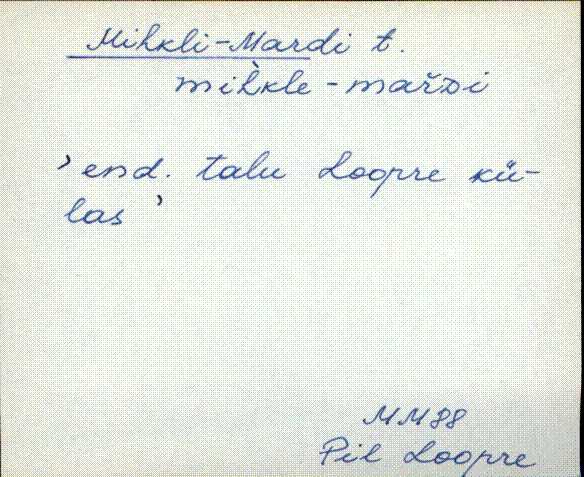 Mihkli-Mardi t.
mìhkle-mařᴅi
’end. talu Loopre kü-
las’
MM 88
Pil Loopre